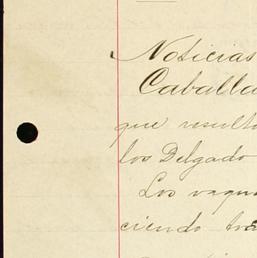 Noticias
Caballa
que result
los Delgado
Los vaqu
ciendo tra